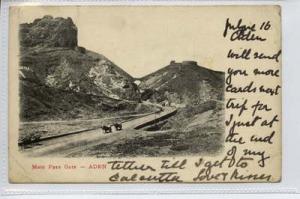 July 16
Aden
Will send
you more
cards next
trip for
I just at
the end
of my
tether till I get to
Calcutta Love
Main Pass Gate — ADEN